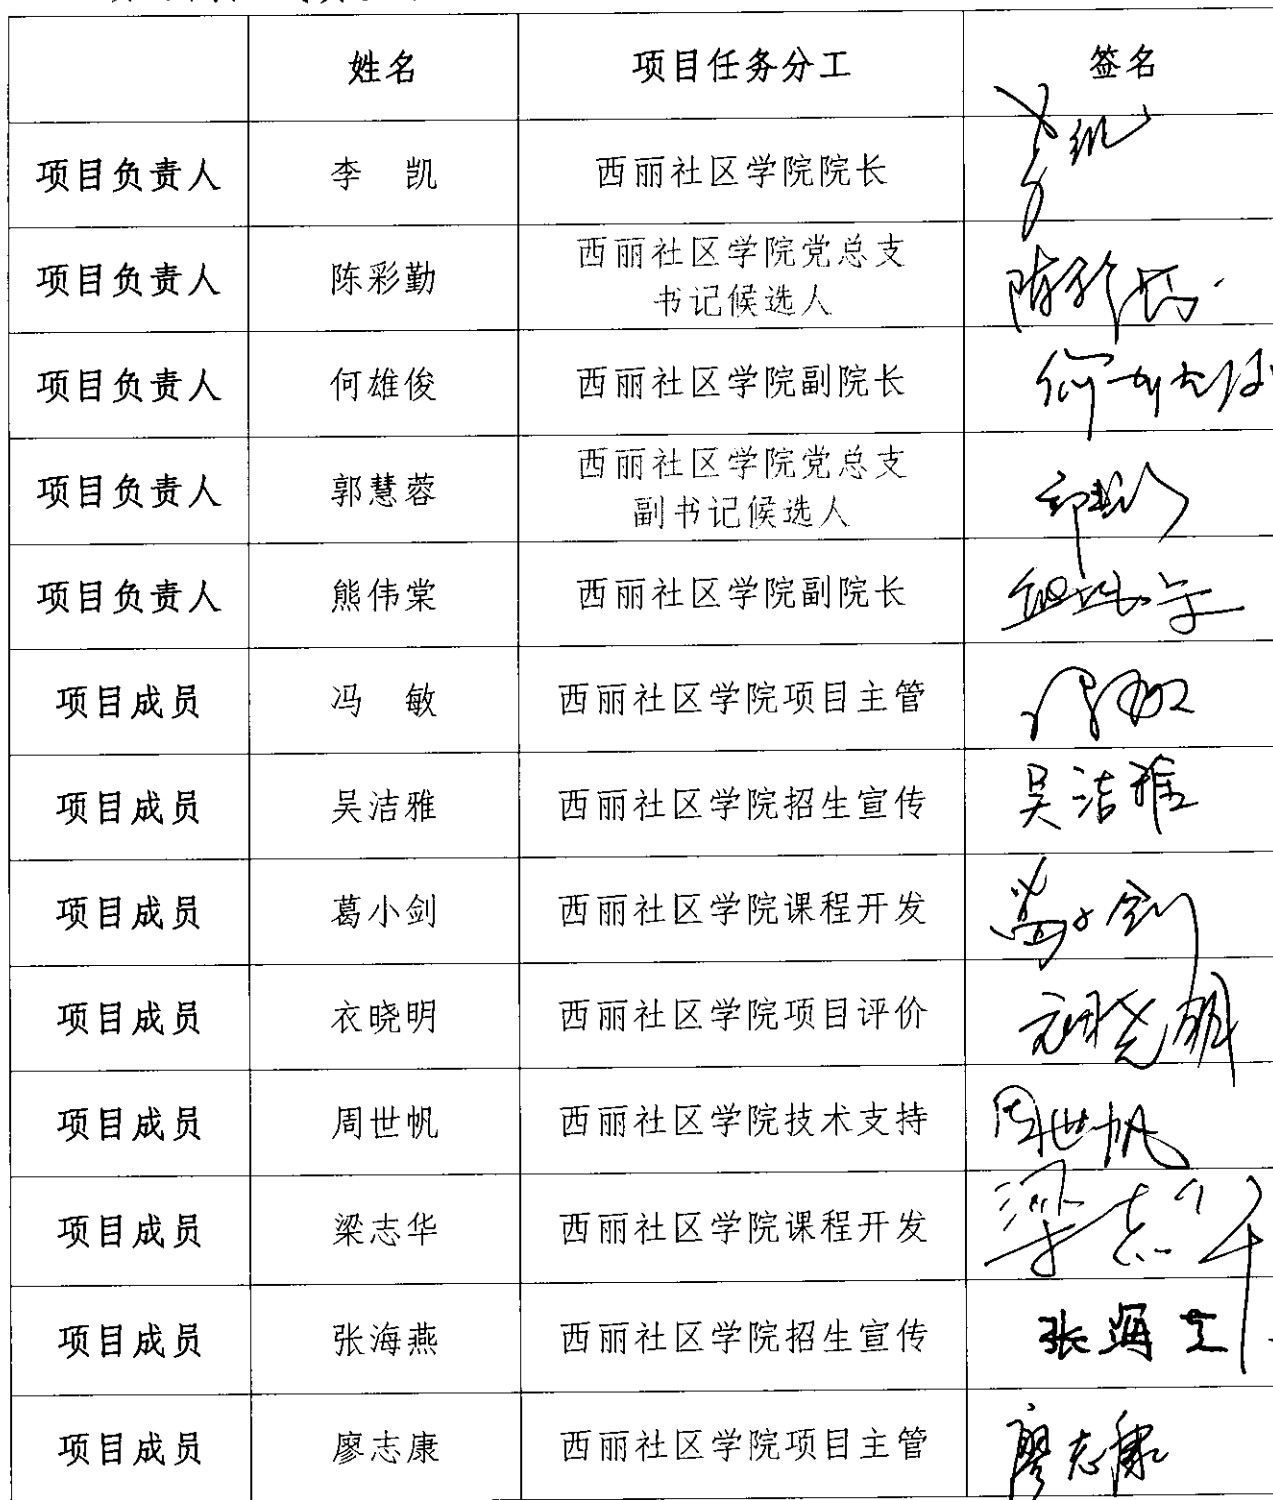 姓名 项目任务分工 签名
项目负责人 李 凯 西丽社区学院院长
项目负责人 陈彩勤 西丽社区学院党总支
书记候选人
项目负责人 何雄俊 西丽社区学院副院长
项目负责人 郭慧蓉 西丽社区学院党总支
副书记候选人
项目负责人 熊伟棠 西丽社区学院副院长
项目成员 冯 敏 西丽社区学院项目主管
项目成员 吴洁雅 西丽社区学院招生宣传 吴洁雅
项目成员 葛小剑 西丽社区学院课程开发 葛小剑
项目成员 衣晓明 西丽社区学院项目评价
项目成员 周世帆 西丽社区学院技术支持 周世帆
项目成员 梁志华 西丽社区学院课程开发 梁志华
项目成员 张海燕 西丽社区学院招生宣传
项目成员 廖志康 西丽社区学院项目主管 廖志康